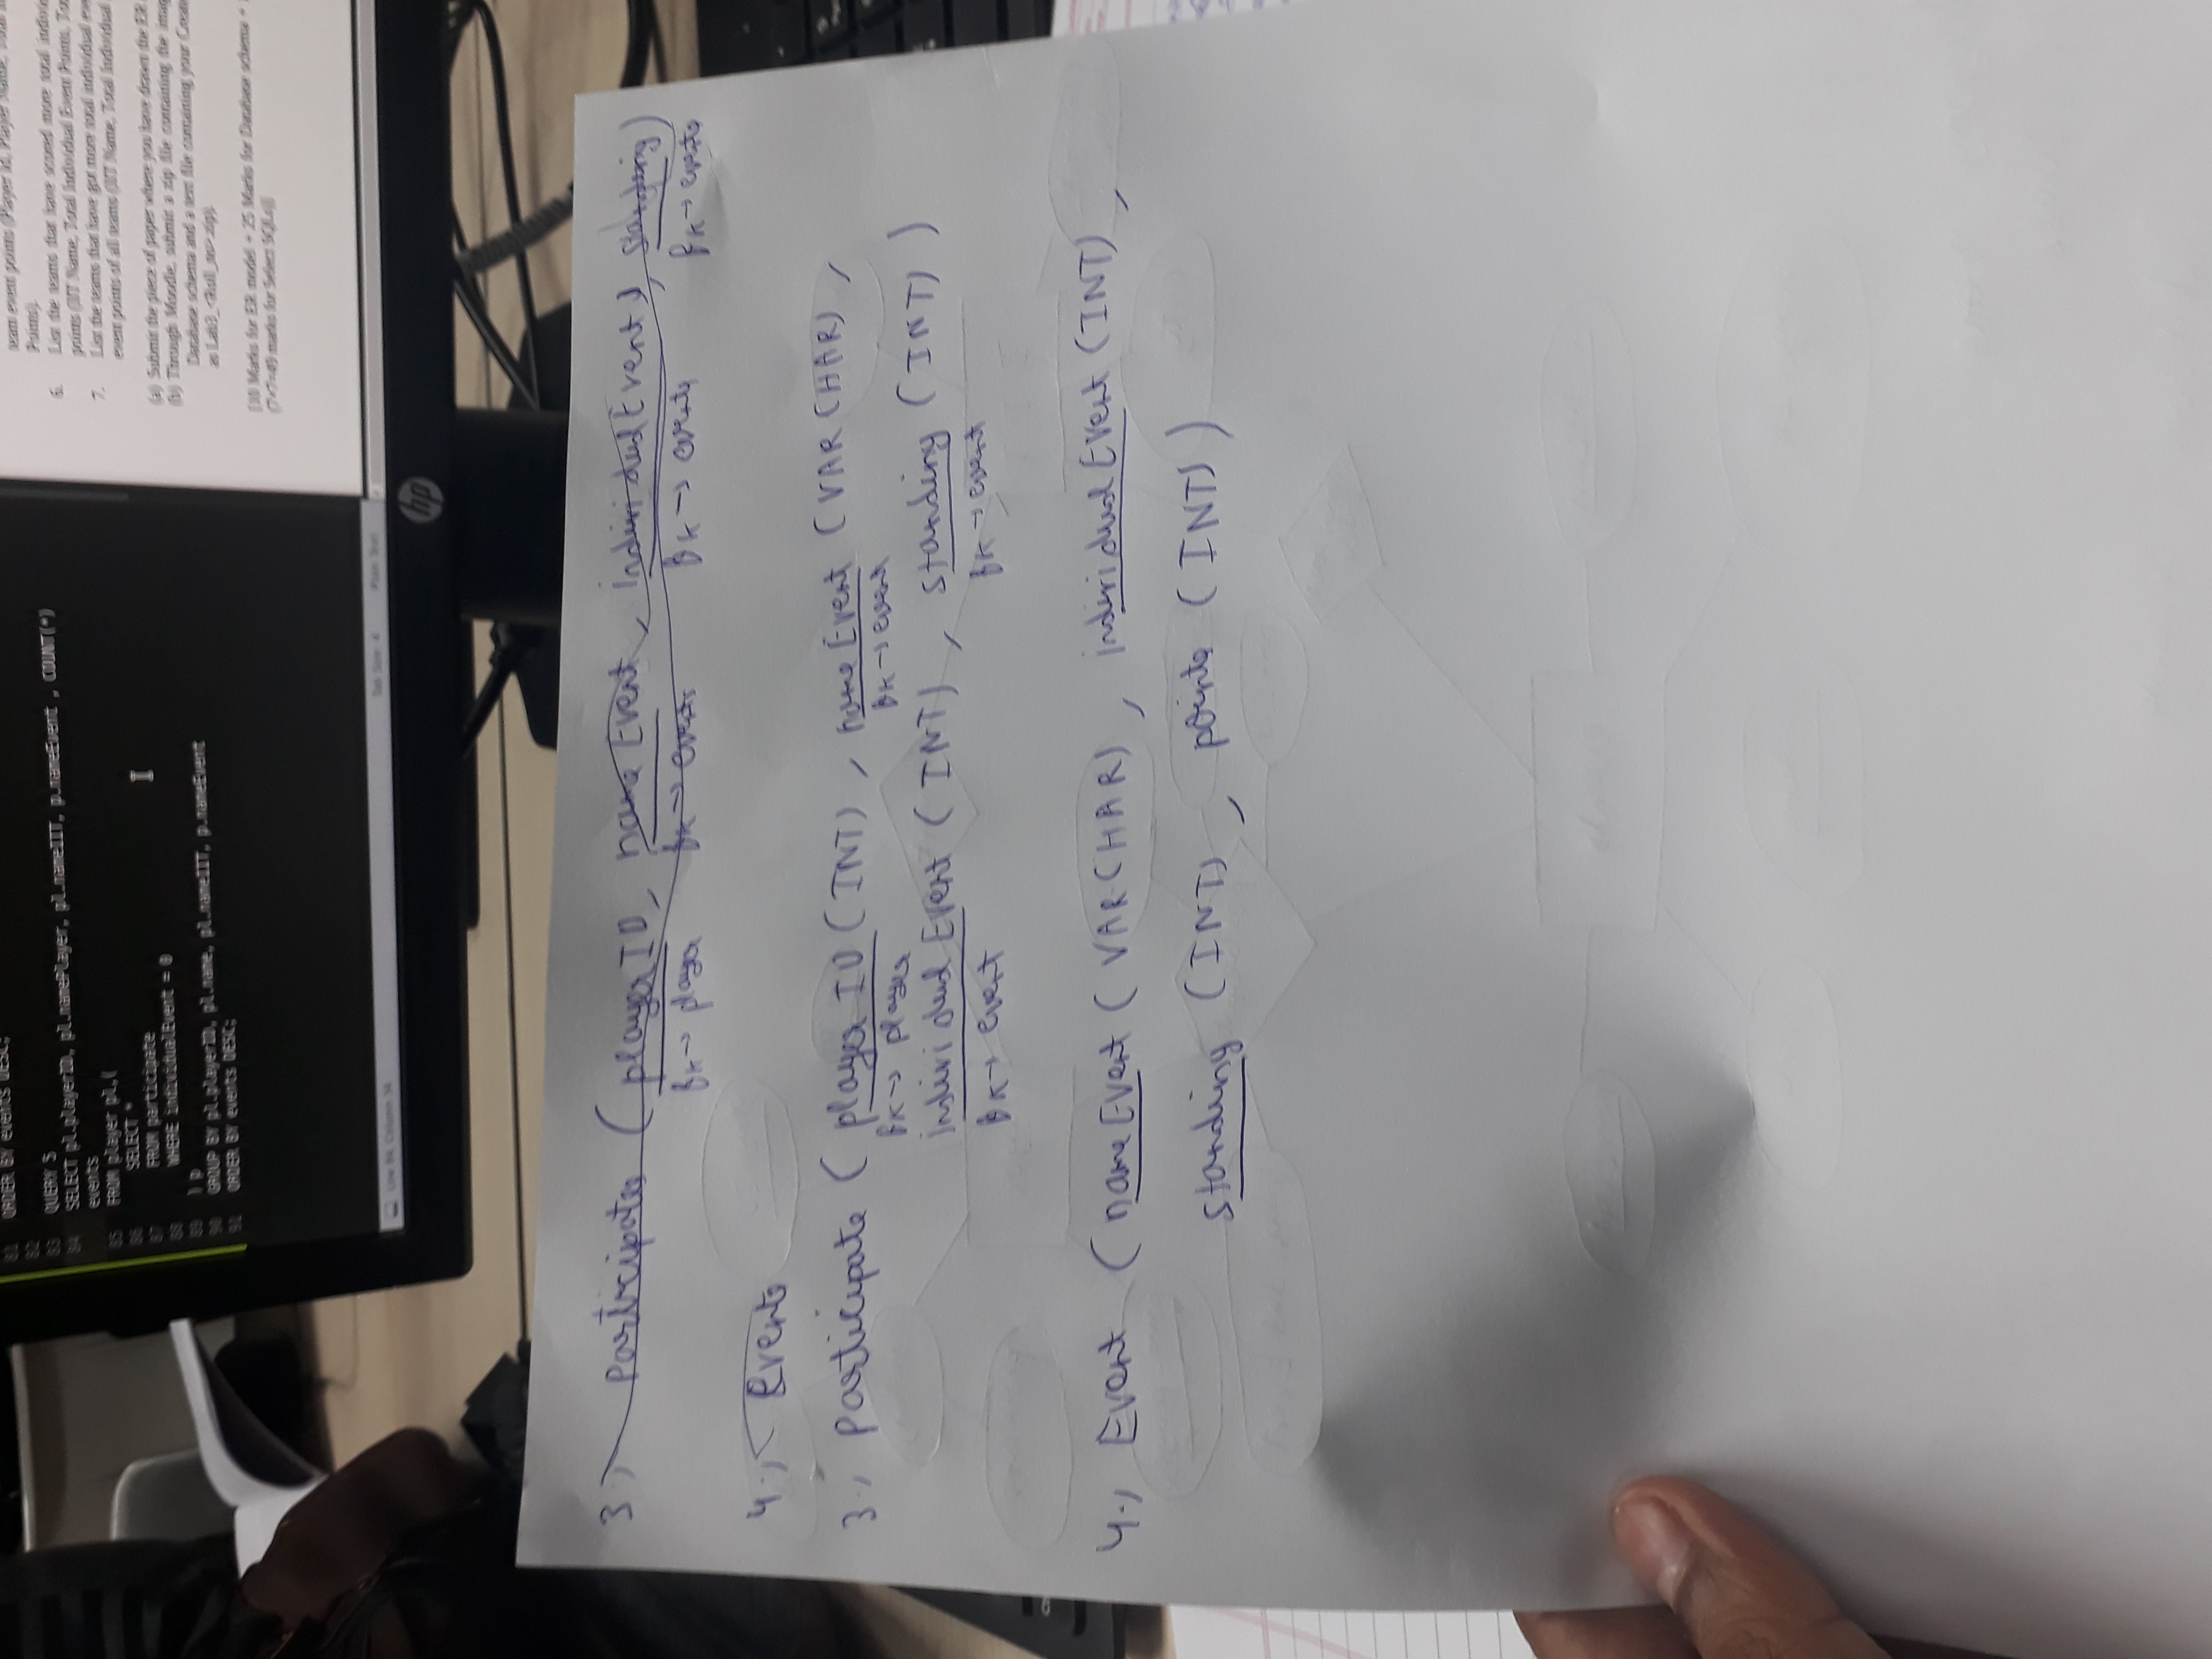 81 ORDER BY events DESC;
82
83 QUERY 5
84 SELECT pl.playerID, pl.namePlayer, pl.nameIIT, p.nameEvent , COUNT(*)
events
85 FROM player pl,(
86 SELECT *
87 FROM participate
88 WHERE individualEvent = 0
89 ) p
90 GROUP BY pl.playerID, pl.name, pl.nameIIT, p.nameEvent
91 ORDER BY events DESC;
Line 84, Column 54 Tab Size: 4 Plain Text
team event points (Player Id, Player Name, Total
Points).
6. List the teams that have scored more total
points (IIT Name, Total Individual Event Points,
7. List the teams that have got more total individual
event points of all teams (IIT Name, Total Individual
(a) Submit the piece of paper where you have drawn the ER
(b) Through Moodle, submit a zip file containing the
Database schema and a text file containing your
as Lab3_<Roll_no>.zip).
[10 Marks for ER model + 25 Marks for Database schema +
(7×7=49 marks for Select SQLs)]
hp
3) Participates ( playerID, nameEvent, individualEvent), standing)
fk→ player fk→ events fk→ events fk→ events
4.) Events
3.) Participate ( playerID (INT) , nameEvent (VARCHAR) ,
fk→ player fk→ event
individualEvent (INT) , standing (INT) )
fk→ event fk→ event
4.) Event ( nameEvent (VARCHAR) , individualEvent (INT) ,
standing (INT) , points (INT) )